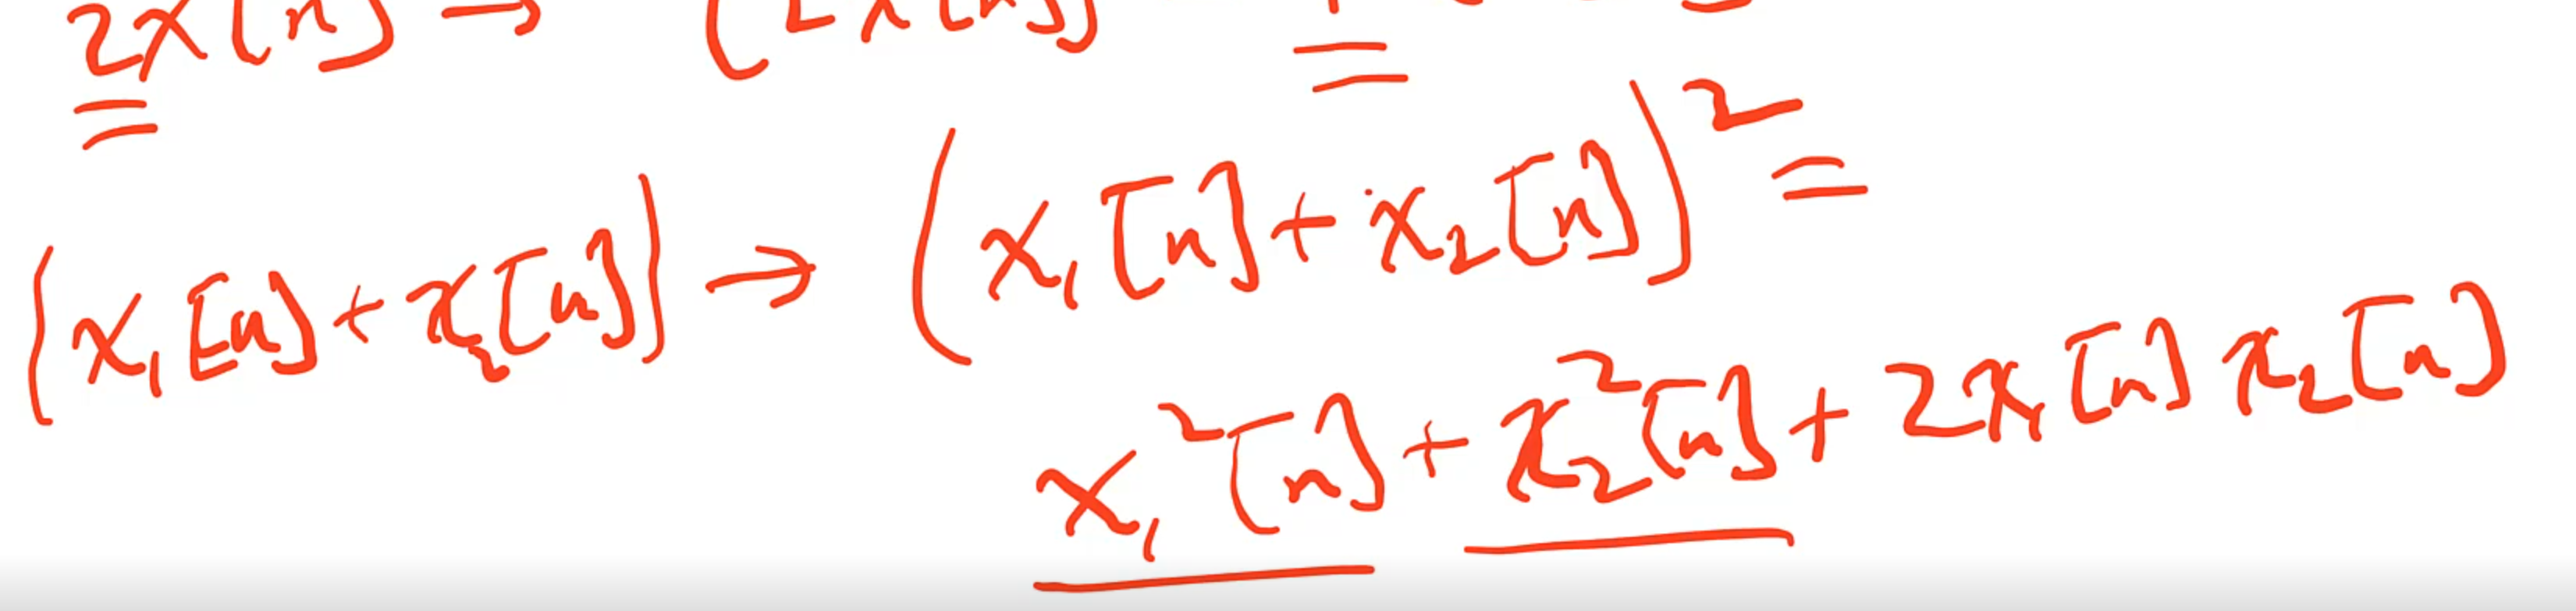 2x[n] → (2x[n]
{x₁[n] + x₂[n]} → (x₁[n] + x₂[n])² =
x₁²[n] + x₂²[n] + 2x₁[n] x₂[n]